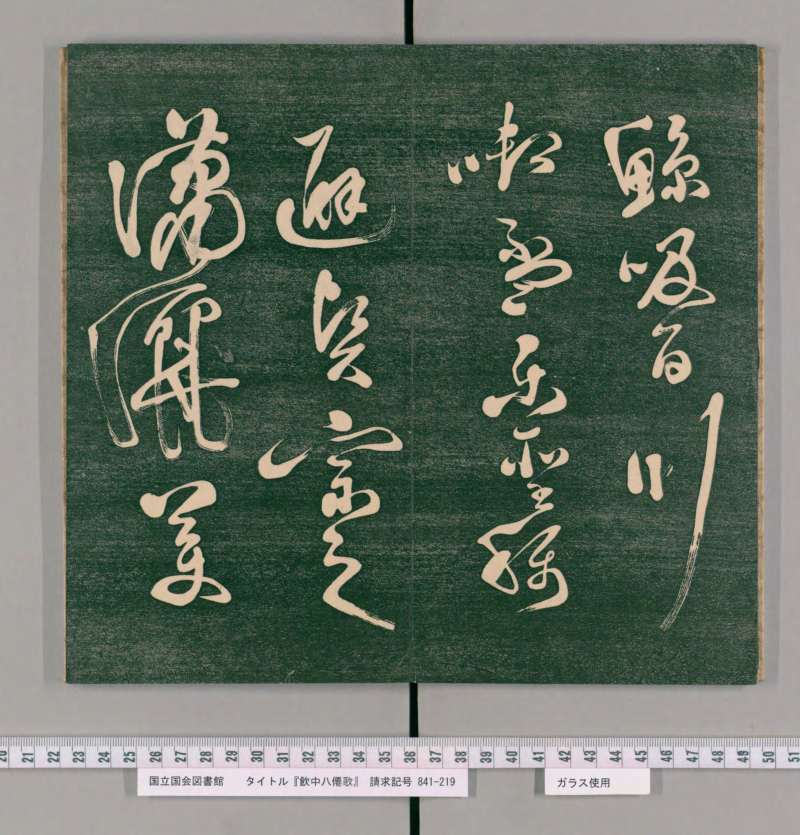 鯨吸百川
啣盃樂聖稱
避賢宗之
瀟灑美
20 21 22 23 24 25 26 27 28 29 30 31 32 33 34 35 36 37 38 39 40 41 42 43 44 45 46 47 48 49 50 51
国立国会図書館 タイトル『飲中八僊歌』 請求記号 841-219
ガラス使用